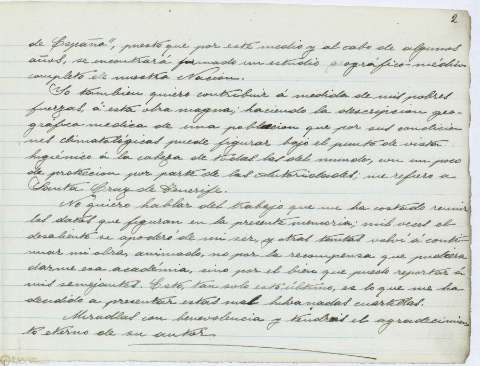 2
de España", puesto que por este medio y al cabo de algunos
años, se encontrará formado un estudio geográfico-médico
completo de nuestra Nacion.
Yo tambien quiero contribuir á medida de mis pobres
fuerzas, á esta obra magna; haciendo la descripsion geo-
gráfica-medica de una poblacion que por sus condicio-
nes climatológicas puede figurar bajo el punto de vista
higiénico á la cabeza de todas las del mundo, con un poco
de proteccion por parte de las Autoridades, me refiero a
Santa Cruz de Tenerife.
No quiero hablar del trabajo que me ha costado reunir
los datos que figuran en la presente memoria; mil veces el
desaliento se apoderó de mi ser, y otras tantas volvi á conti-
nuar mi obra, animado, no por la recompensa que pudiera
darme esa academia, sino por el bien que puedo reportar á
mis semejantes. Esto tan solo esto último, es lo que me ha
decidido a presentar estas mal hilvanadas cuartillas.
Miradlas con benevolencia y tendréis el agradecimien-
to eterno de su autor